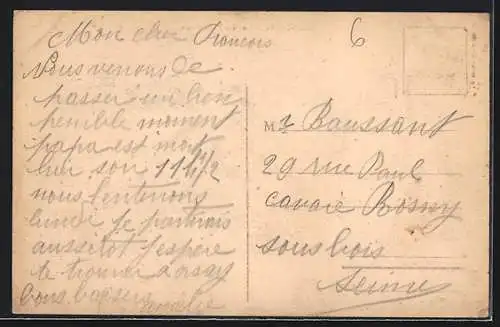 Mon cher François
6
Nous venons de
passer un bien
penible moment
papa est mort
hier soir 11h 1/2
nous l'enterrons
lundi je partirais
aussitot j'espere
te trouver a orsay
bons baisers
Mr Baussant
29 rue Paul
cavaré Rosny
sous bois
Seine